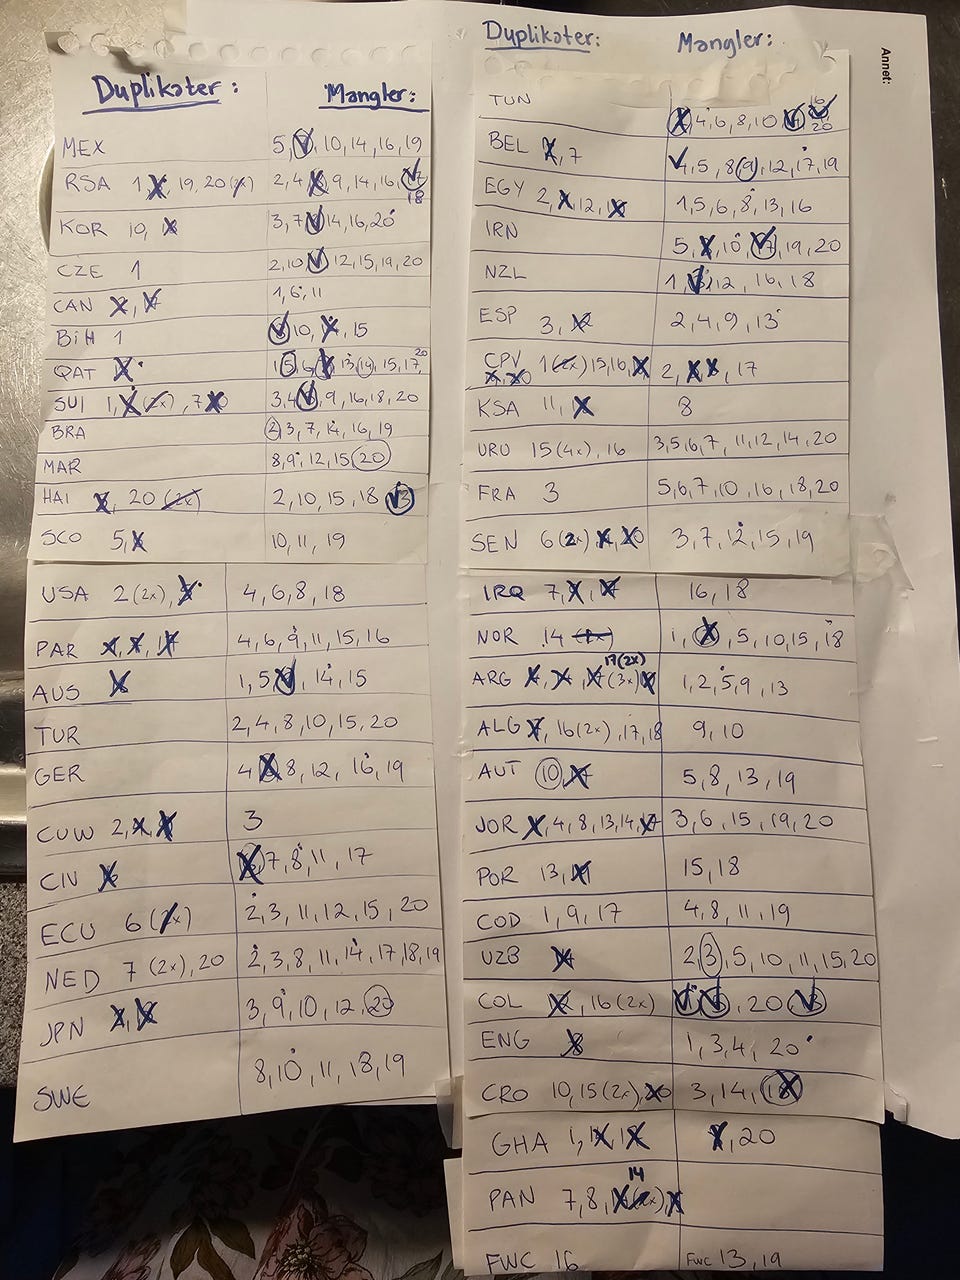 Duplikater: Mangler:
MEX 5, 10, 14, 16, 19
RSA 1, 19, 20 2, 4, 9, 14, 16, 17, 18
KOR 10, 3, 7, 14, 16, 20
CZE 1 2, 10, 12, 15, 19, 20
CAN 1, 6, 11
BiH 1 10, 15
QAT 1, 5, 6, 13, 14, 15, 17, 20
SUI 1, (2x), 7 3, 4, 9, 16, 18, 20
BRA 2, 3, 7, 14, 16, 19
MAR 8, 9, 12, 15, 20
HAI 20 (2x) 2, 10, 15, 18, 13
SCO 5, 10, 11, 19
USA 2 (2x), 4, 6, 8, 18
PAR 4, 6, 9, 11, 15, 16
AUS 1, 5, 14, 15
TUR 2, 4, 8, 10, 15, 20
GER 4, 8, 12, 16, 19
CUW 2, 3
CIV 7, 8, 11, 17
ECU 6 (2x) 2, 3, 11, 12, 15, 20
NED 7 (2x), 20 2, 3, 8, 11, 14, 17, 18, 19
JPN 3, 9, 10, 12, 20
SWE 8, 10, 11, 18, 19
Duplikater: Mangler:
Annet:
TUN 4, 6, 8, 10, 16, 20
BEL 7 4, 5, 8, 9, 12, 17, 19
EGY 2, 12, 1, 5, 6, 8, 13, 16
IRN 5, 10, 17, 19, 20
NZL 1, 12, 16, 18
ESP 3, 2, 4, 9, 13
CPV 1 (2x) 15, 16, 2, 17
KSA 11, 8
URU 15 (4x), 16 3, 5, 6, 7, 11, 12, 14, 20
FRA 3 5, 6, 7, 10, 16, 18, 20
SEN 6 (2x) 3, 7, 12, 15, 19
IRQ 7, 16, 18
NOR 14 (2x) 1, 5, 10, 15, 18
ARG 17 (2x) (3x) 1, 2, 5, 9, 13
ALG 16 (2x), 17, 18 9, 10
AUT 10 5, 8, 13, 19
JOR 4, 8, 13, 14, 3, 6, 15, 19, 20
POR 13, 15, 18
COD 1, 9, 17 4, 8, 11, 19
UZB 2, 3, 5, 10, 11, 15, 20
COL 16 (2x) 20
ENG 1, 3, 4, 20
CRO 10, 15 (2x), 3, 14, 18
GHA 1, 20
PAN 7, 8, 14
FWC 16 FWC 13, 19